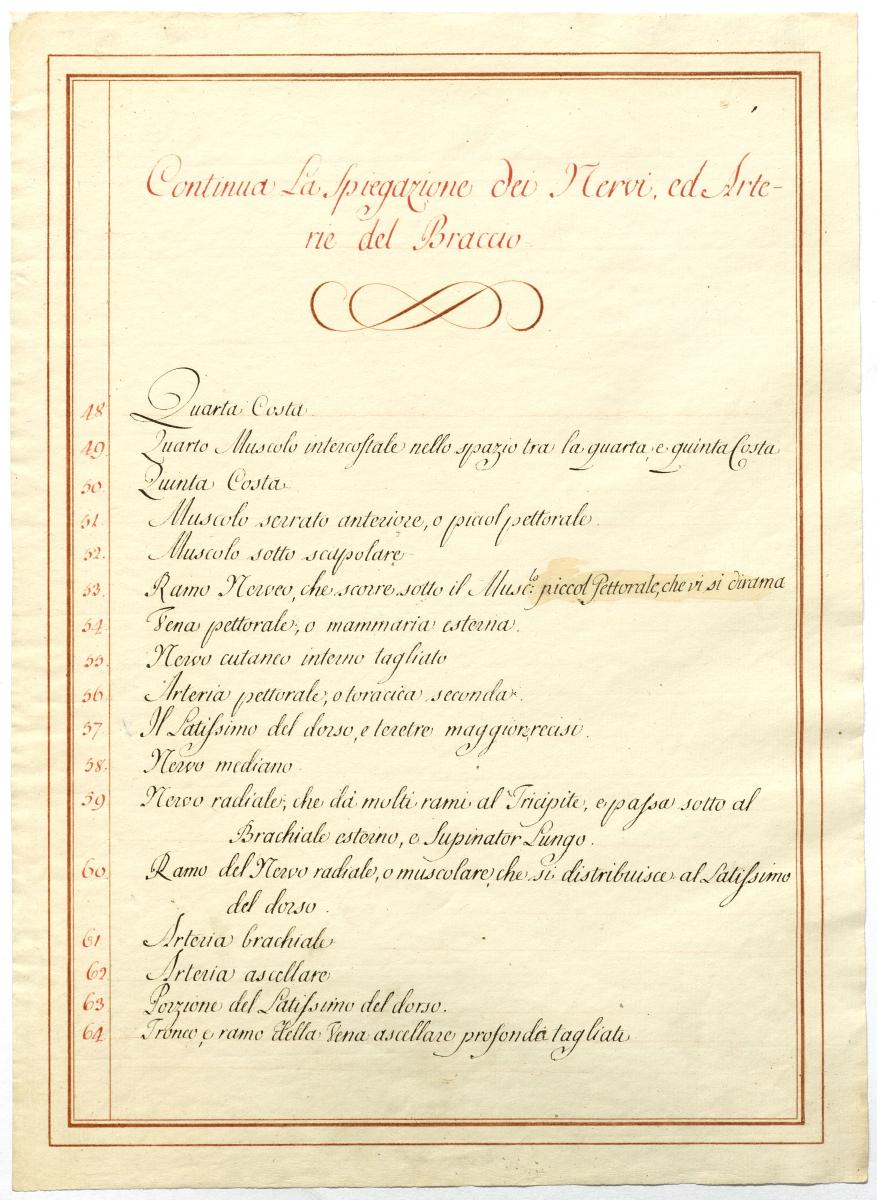 Continua La Spiegazione dei Nervi, ed Arte-
rie del Braccio
48 Quarta Costa
49 Quarto Muscolo intercostale nello spazio tra la quarta, e quinta Costa
50. Quinta Costa
51. Muscolo serrato anteriore, o piccol pettorale.
52. Muscolo sotto scapolare
53. Ramo Nerveo, che scorre sotto il Musc.lo: piccol Pettorale, che vi si dirama
54 Vena pettorale, o mammaria esterna.
55. Nervo cutaneo interno tagliato
56 Arteria pettorale, o toracica seconda.
57. Il Latissimo del dorso, e teretre maggior, recisi.
58. Nervo mediano
59 Nervo radiale, che dà molti rami al Tricipite, e passa sotto al
Brachiale esterno, e Supinator Lungo.
60. Ramo del Nervo radiale, o muscolare, che si distribuisce al Latissimo
del dorso.
61 Arteria brachiale
62 Arteria ascellare
63 Porzione del Latissimo del dorso.
64 Tronco, e ramo della Vena ascellare profonda tagliati